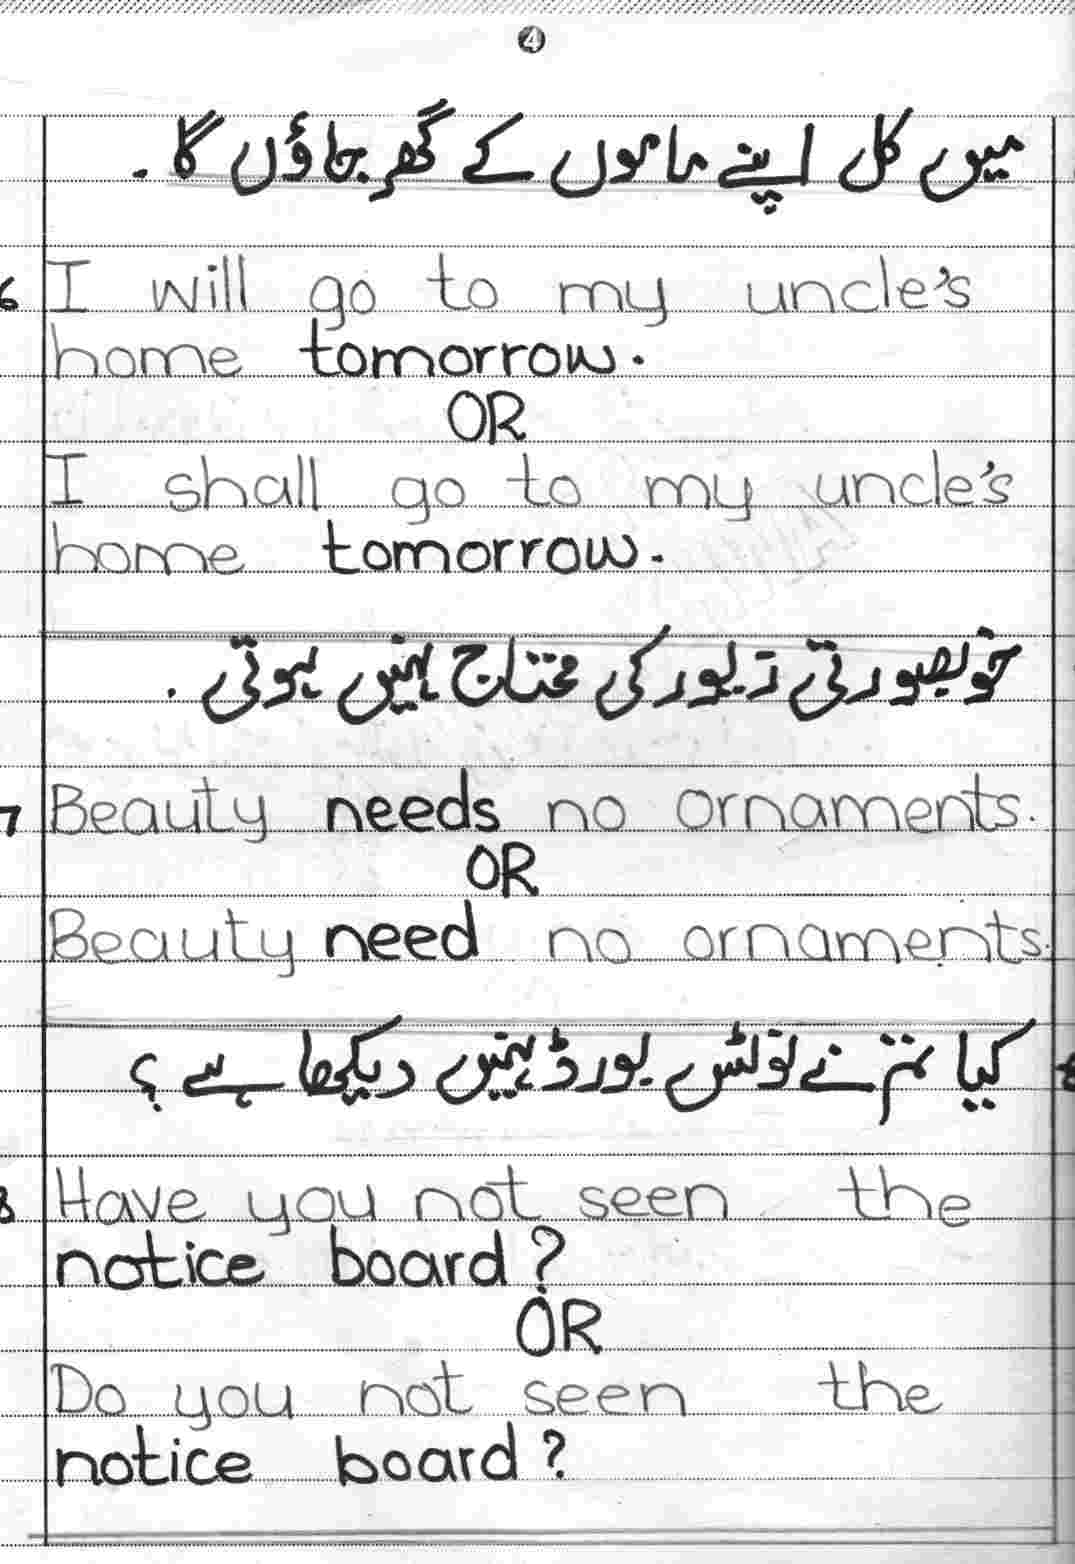 4
میں کل اپنے ماموں کے گھر جاؤں گا۔
6 I will go to my uncle's
home tomorrow.
OR
I shall go to my uncle's
home tomorrow.
خوبصورتی زیور کی محتاج نہیں ہوتی۔
7 Beauty needs no ornaments.
OR
Beauty need no ornaments.
کیا تم نے نوٹس بورڈ نہیں دیکھا ہے؟
8 Have you not seen the
notice board?
OR
Do you not seen the
notice board?